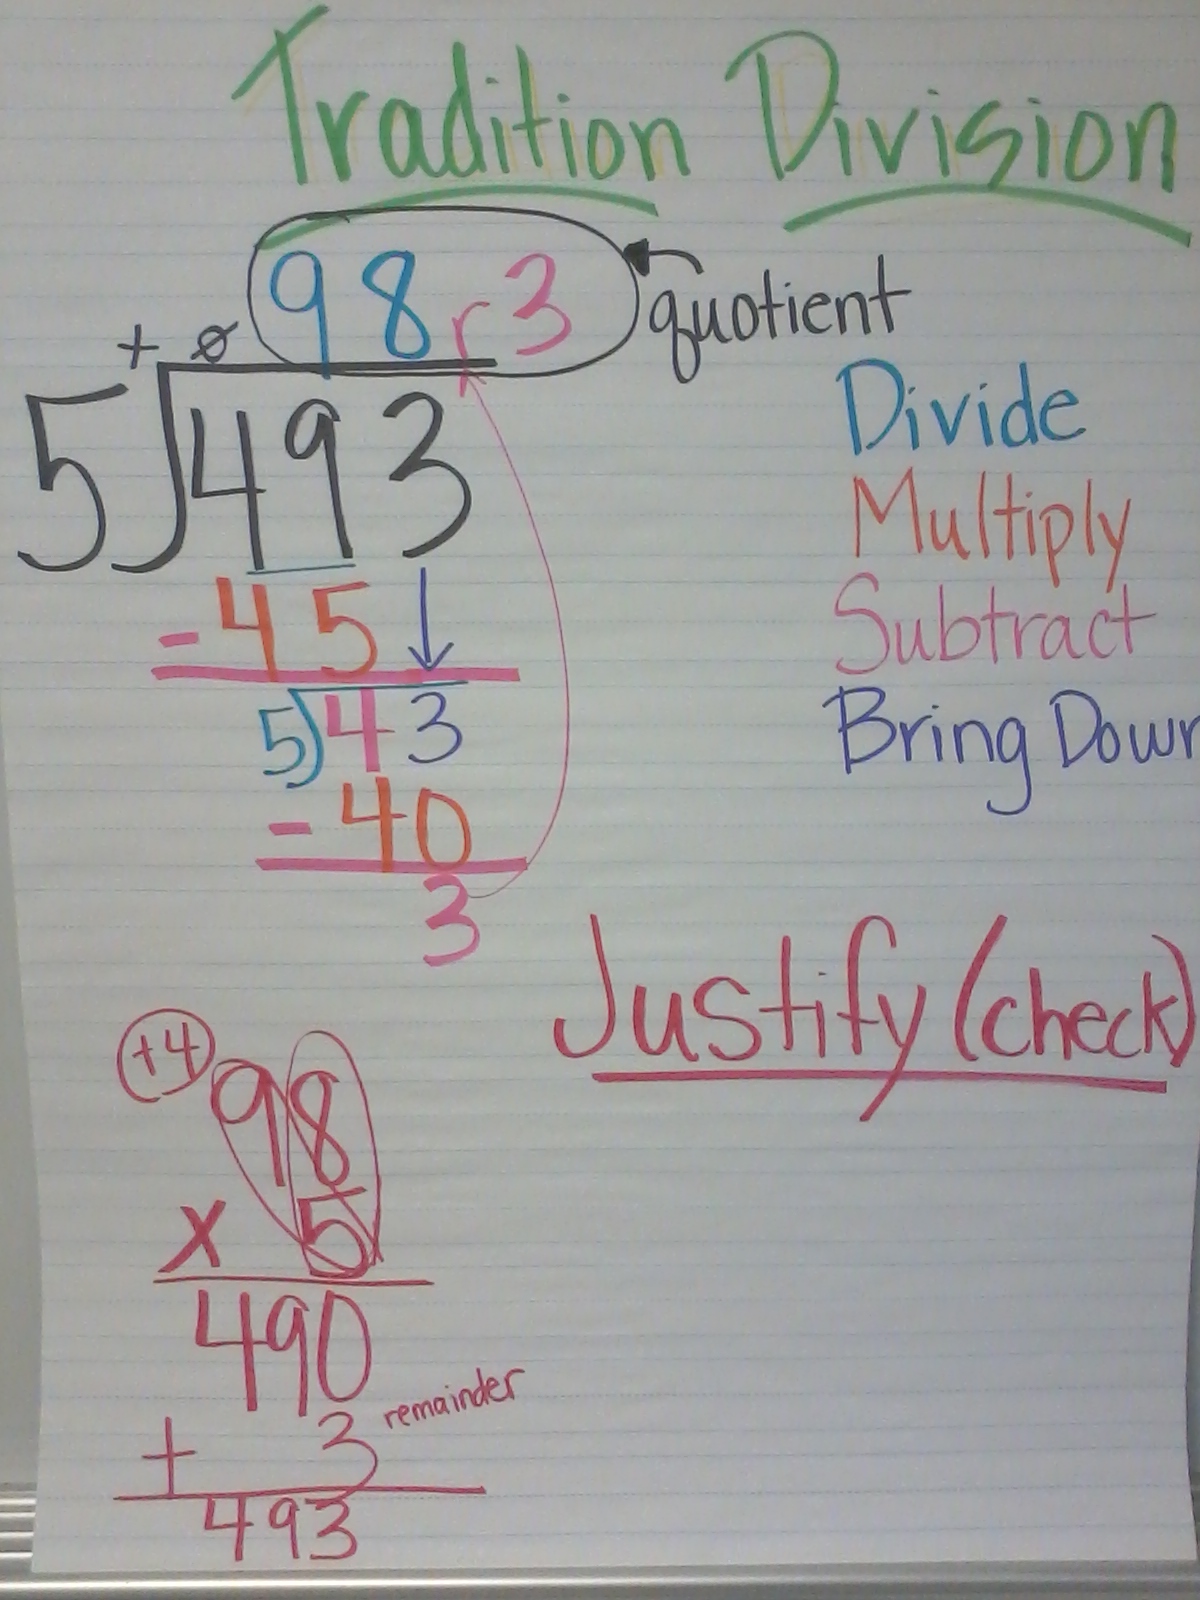 Tradition Division
+ ø 98 r3
quotient
5)493
Divide
Multiply
- 45
Subtract
5)43
Bring Down
- 40
3
Justify (check)
+4
98
x 5
490
+ 3 remainder
493